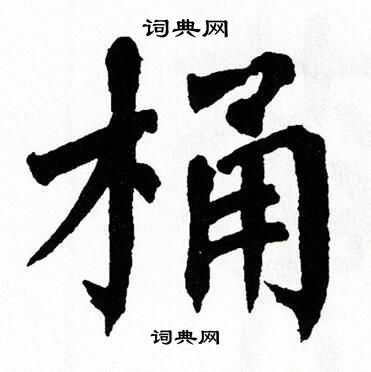 词典网
桶
词典网